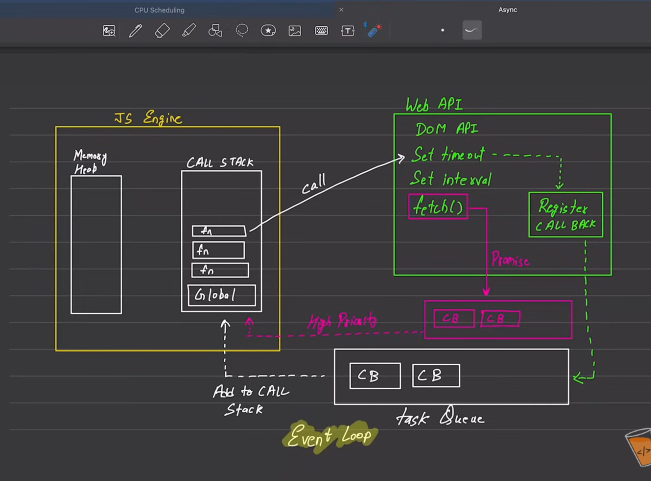 CPU Scheduling
Async
JS Engine
Memory
Heab
CALL STACK
fn
fn
fn
Global
call
Web API
DOM API
Set timeout
Set interval
fetch()
Register
CALL BACK
Promise
CB CB
High Priority
CB CB
Add to CALL
Stack
task Queue
Event Loop